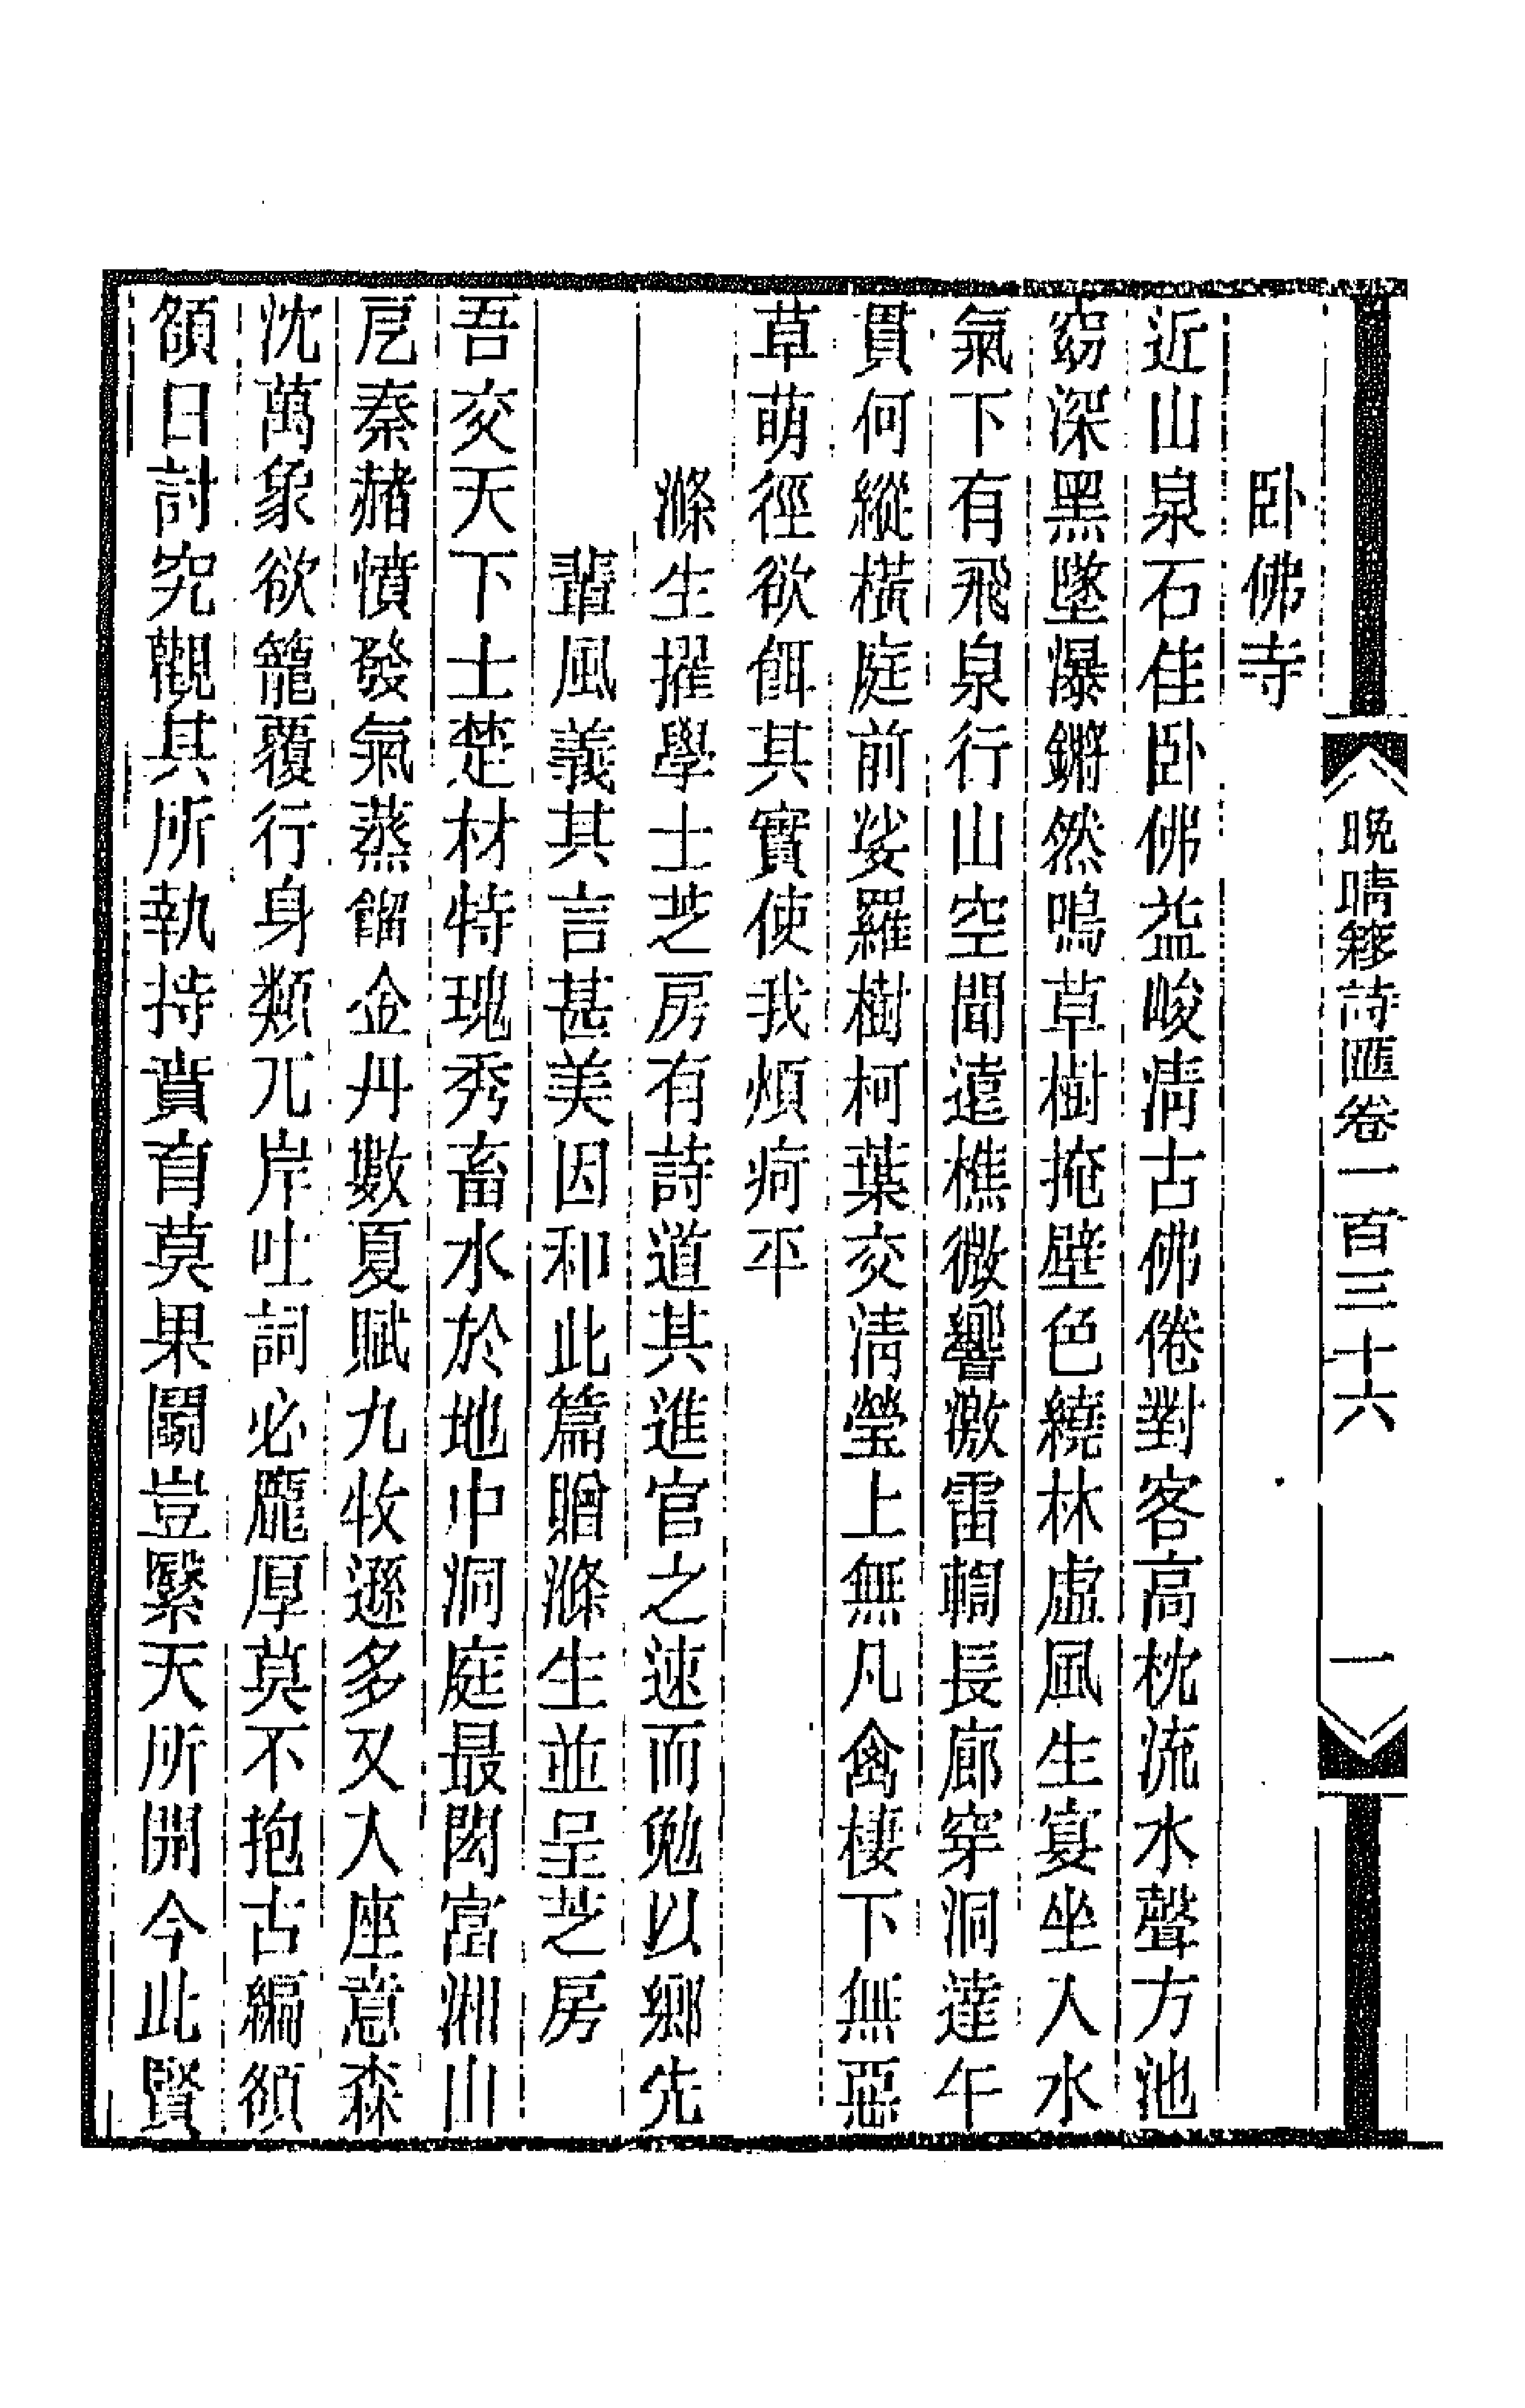 晚晴簃詩匯卷一百三十六
一
卧佛寺
近山泉石佳卧佛益峻清古佛倦對客高枕流水聲方池
窈深黑墜瀑鏘然鳴草樹掩壁色繞林虛風生宴坐人水
氣下有飛泉行山空聞遠樵微響激雷輷長廊穿洞達午
貫何縱橫庭前娑羅樹柯葉交清瑩上無凡禽棲下無惡
草萌徑欲餌其實使我煩痾平
滌生擢學士芝房有詩道其進官之速而勉以鄉先
輩風義其言甚美因和此篇贈滌生並呈芝房
吾交天下士楚材特瑰秀畜水於地中洞庭最閎富洲山
卮秦赭憤發氣蒸餾金丹數夏賦九牧遜多又人座意森
沈萬象欲籠覆行身類兀岸吐詞必龐厚莫不抱古編頟
頟日討究觀其所執持賁育莫果鬭豈繄天所開今此賢